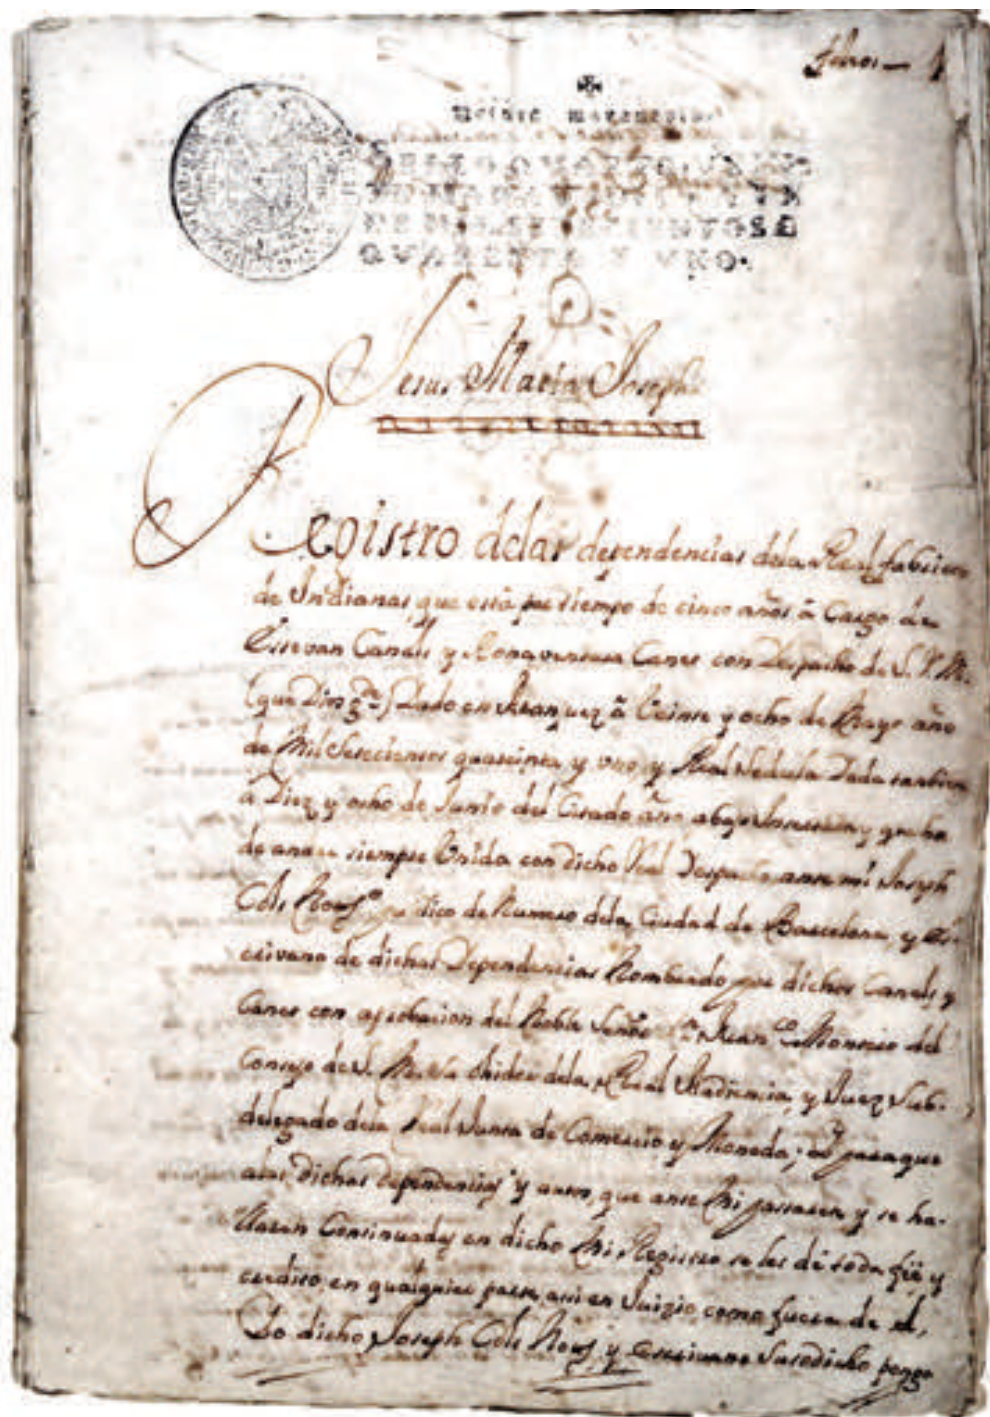 Veinte maravedis
SELLO QVARTO, VEIN
TE MARAVEDIS, AÑO
DE MIL SETECIENTOS E
QVARENTA Y VNO.
Jesus Maria Joseph
Registro delas dependencias dela Real fabrica
de Indianas que está por tiempo de cinco años à Cargo de
Estevan Canals y Bonaventura Canet con Despacho de S. R. M.
(que Dios g.e) Dado en Aranjuez à Veinte y ocho de Mayo año
de Mil Setecientos quarenta y uno, y Real Zedula Dada tambien
a Diez y ocho de Junio del Citado año abajo Inserta, y que ha
de andar siempre Unida con dicho Real Despacho ante mi Joseph
Cols Not.o pu.co de Numero dela Ciudad de Barcelona, y Es-
crivano de dichas Dependencias Nombrado por dichos Canals y
Canet con aprobacion del Noble Señor Dn Juan Co Monnio del
Consejo de S. M. su Ohidor dela Real Audiencia, y Juez Sub-
delegado dela Real Junta de Comercio y Moneda; Y paraque
alas dichas Dependencias y autos, que ante Mi passaren y se ha-
llaren Continuadas en dicho Mi Registro se les dè toda feè y
credito, en qualquier parte, assi en Juizio como fuera de el,
Yo dicho Joseph Cols Not. y Escrivano Susodicho pongo